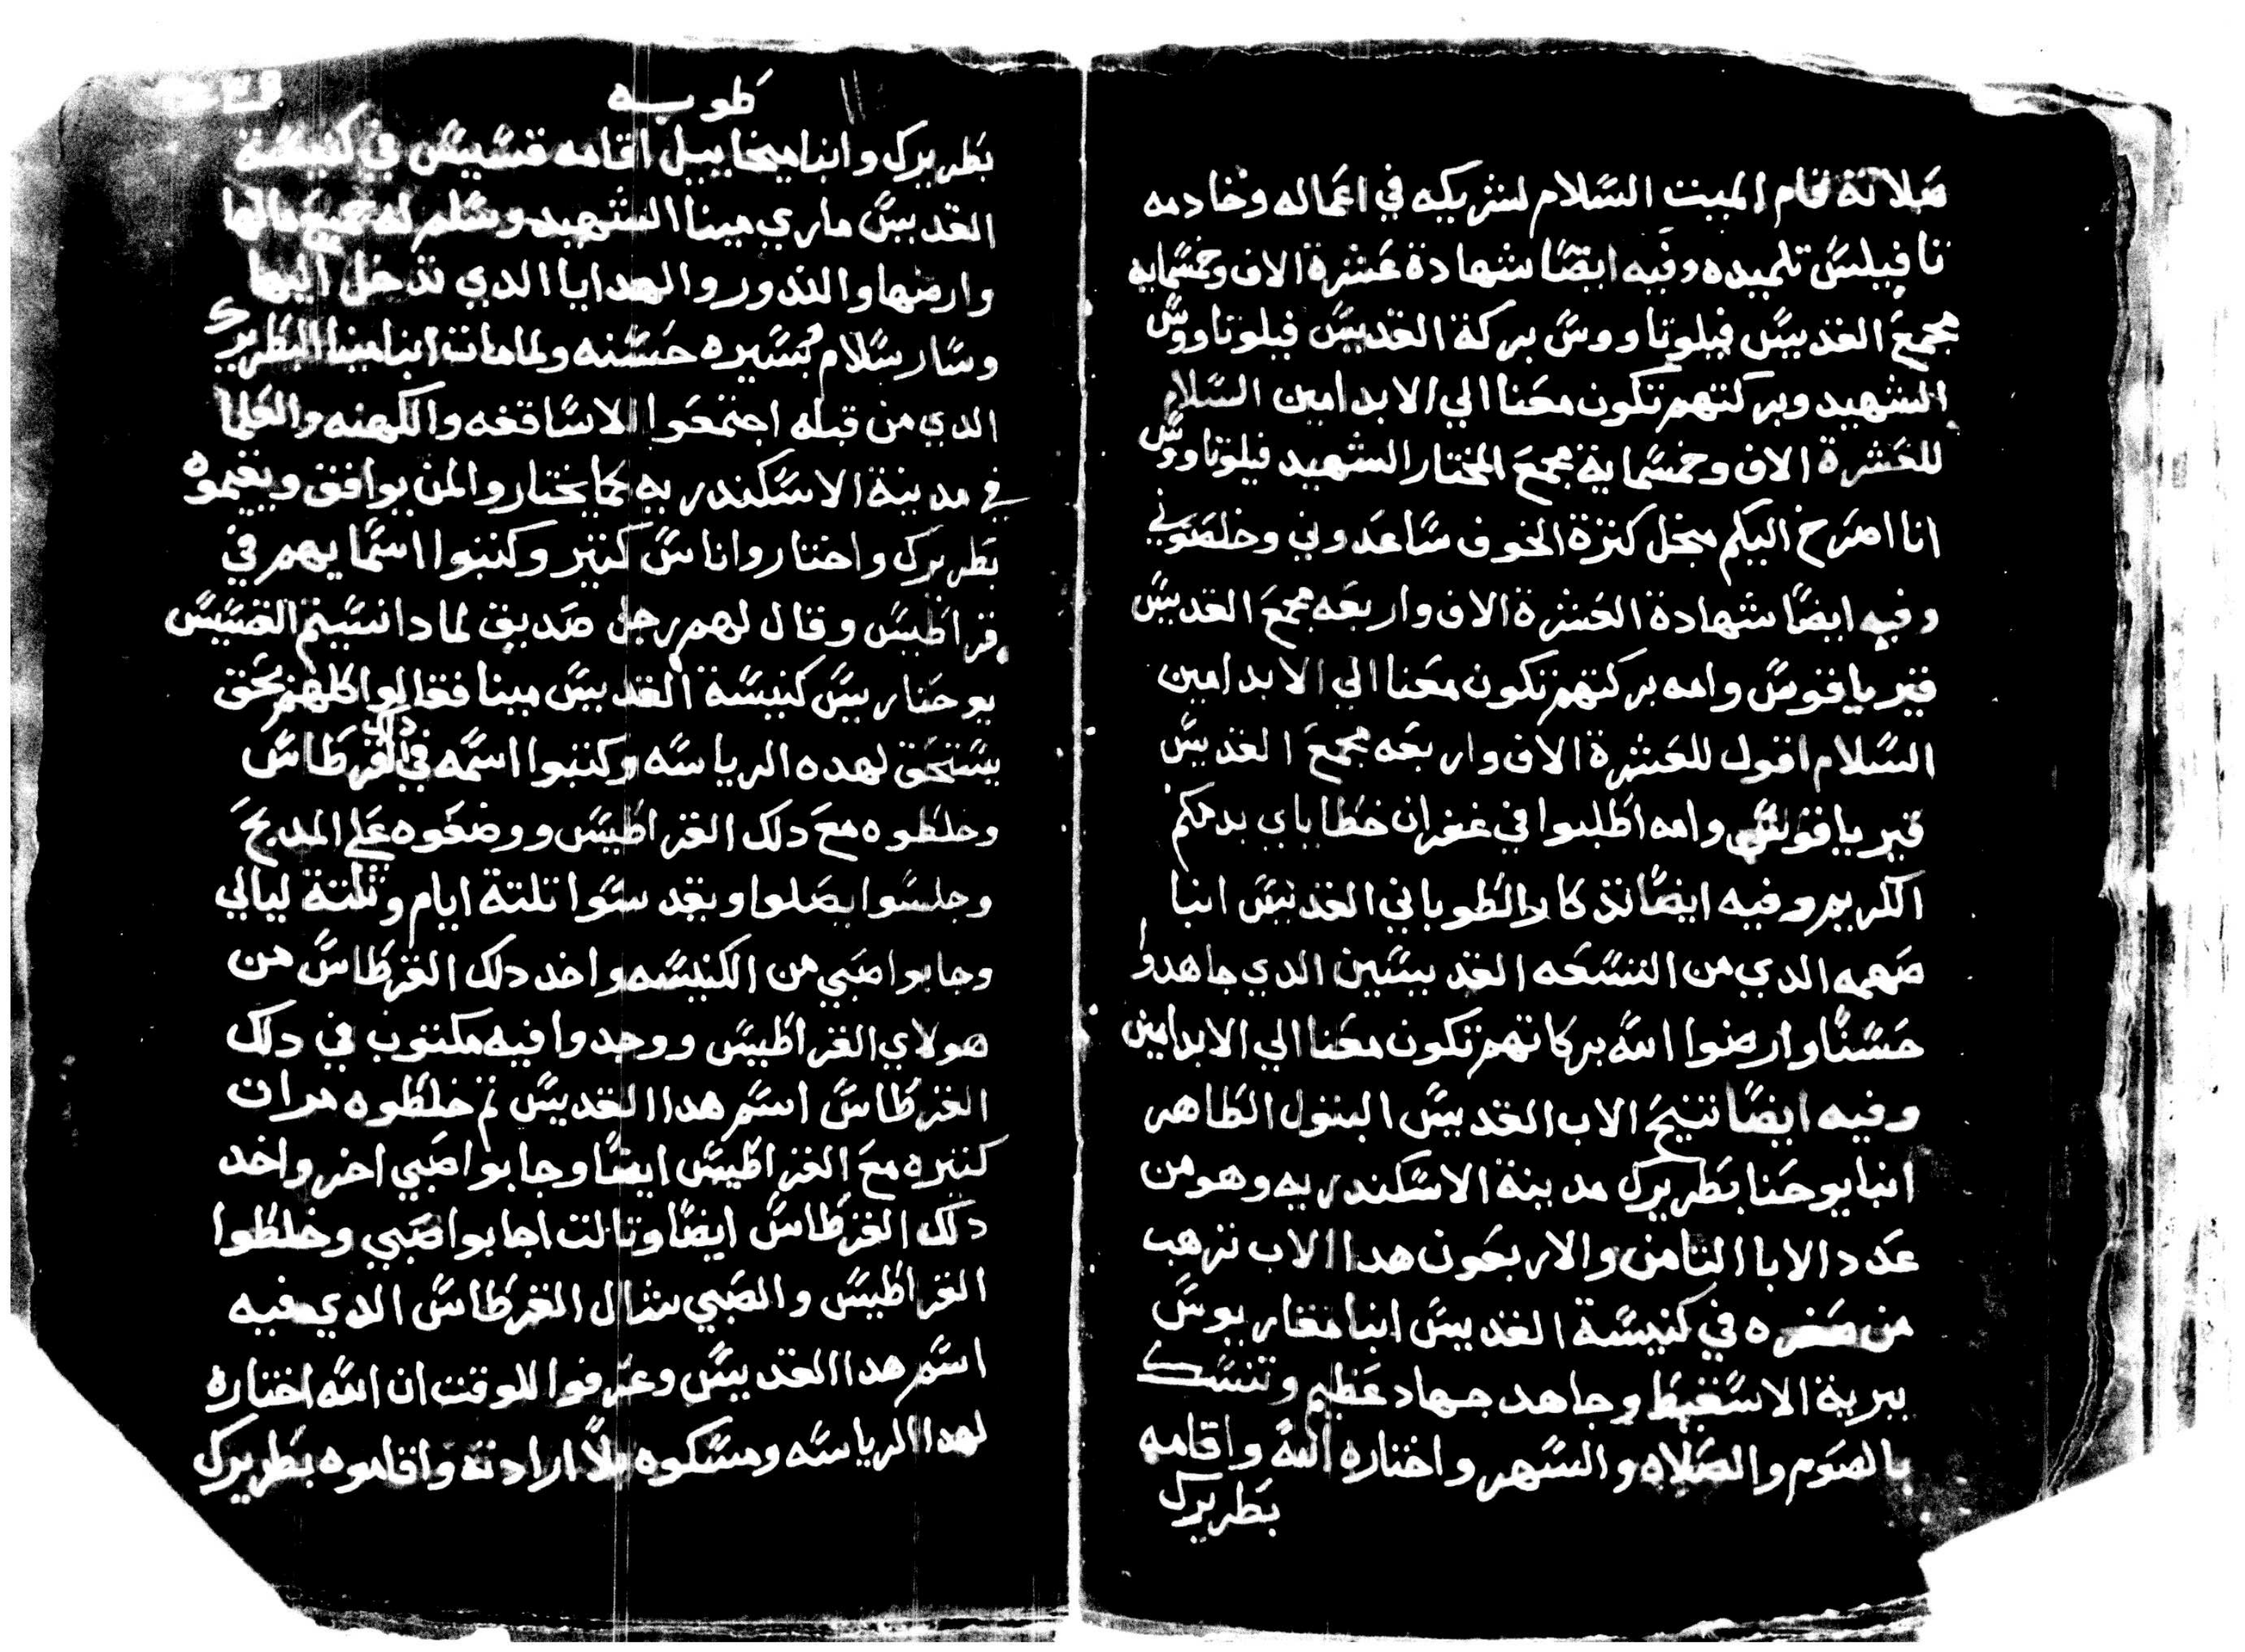 صلاته قام الميت السلام لشريكه في اعماله وخادمه
تافيلس تلميده وفيه ايضًا شهادة عشرة الاف وخمسمايه
مجمع القديس فيلوتاووس بركة القديس فيلوتاووس
الشهيد وبركتهم تكون معنا الي الابد امين السلام
للعشرة الاف وخمسماية مجمع المختار الشهيد فيلوتاووس
انا اصرخ اليكم مجل كترة الخوف ساعدوني وخلصوني
وفيه ايضًا شهادة العشرة الاف واربعه مجمع القديس
قيرياقوس وامه بركتهم تكون معنا الي الابد امين
السلام اقول للعشرة الاف واربعه مجمع القديس
قيرياقوس وامه اطلبوا في غفران خطاياي بدمكم
الكريم وفيه ايضًا تدكار الطوباني القديس انبا
صهمه الدي من التسعه القديسين الدي جاهدوا
حسنًا وارضوا الله بركاتهم تكون معنا الي الابد امين
وفيه ايضًا تنيح الاب القديس البتول الطاهر
انبا يوحنا بطريرك مدينة الاسكندريه وهو من
عدد الابا التامن والاربعون هدا الاب ترهب
من صغره في كنيسة القديس ابنا مقاريوس
ببرية الاسقيط وجاهد جهاد عظيم وتنسك
بالصوم والصلاه والسهر واختاره الله واقامه
بطريرك
طوبه
بطريرك وانبا ميخاييل اقامه قسيس في كنيسة
القديس ماري مينا الشهيد وسلم له جميع مالها
وارضها والندور والهدايا الدي تدخل اليها
وسار سلام وبسيره حسنه ولما مات انبا مينا البطريرك
الدي من قبله اجتمعوا الاساقفه والكهنه والعلما
في مدينة الاسكندريه كما يختاروا لمن يوافق ويقيموه
بطريرك واختاروا اناس كتير وكتبوا اسمايهم في
قراطيس وقال لهم رجل صديق لمادا نسيتم القسيس
يوحنا ريس كنيسة القديس مينا فقالوا كلهم بحق
يستحق لهده الرياسه وكتبوا اسمه في دلك القرطاس
وخلطوه مع دلك القراطيس ووضعوه علي المدبح
وجلسوا يصلوا ويقدسوا تلتة ايام وتلتة ليالي
وجابوا صبي من الكنيسه واخد دلك القرطاس من
هولاي القراطيس ووجدوا فيه مكتوب في دلك
القرطاس اسم هدا القديس تم خلطوه مرات
كتيره مع القراطيس ايضًا وجابوا صبي اخر واخد
دلك القرطاس ايضًا وتالت اجابوا صبي وخلطوا
القراطيس والصبي شال القرطاس الدي فيه
اسم هدا القديس وعرفوا للوقت ان الله اختاره
لهدا الرياسه ومسكوه بلا ارادته واقاموه بطريرك